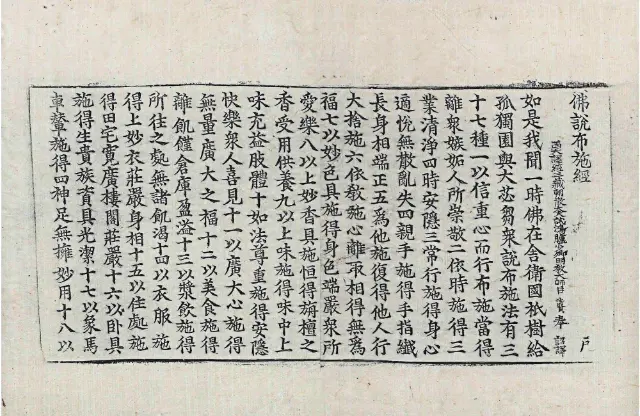 佛說布施經
尸
譯經三藏朝散大夫試鴻臚卿明教大師臣賢奉 詔譯
如是我聞一時佛在舍衛國祇樹給
孤獨園與大苾芻衆說布施法有三
十七種一以信重心而行布施當得
離衆嫉妬人所崇敬二依時施得三
業清淨四時安隱三常行施得身心
適悅無散亂失四親手施得手指纖
長身相端正五爲他施復得他人行
大捨施六依教施心離取相得無爲
福七以妙色具施得身色端嚴衆所
愛樂八以上妙香具施恒得旃檀之
香受用供養九以上味施得味中上
味充益肢體十如法尊重施得安隱
快樂衆人喜見十一以廣大心施得
無量廣大之福十二以美食施得
離飢饉倉庫盈溢十三以漿飲施得
所往之處無諸飢渴十四以衣服施
得上妙衣莊嚴身相十五以住處施
得田宅寬廣樓閣莊嚴十六以卧具
施得生貴族資具光潔十七以象馬
車輦施得四神足無擁妙用十八以